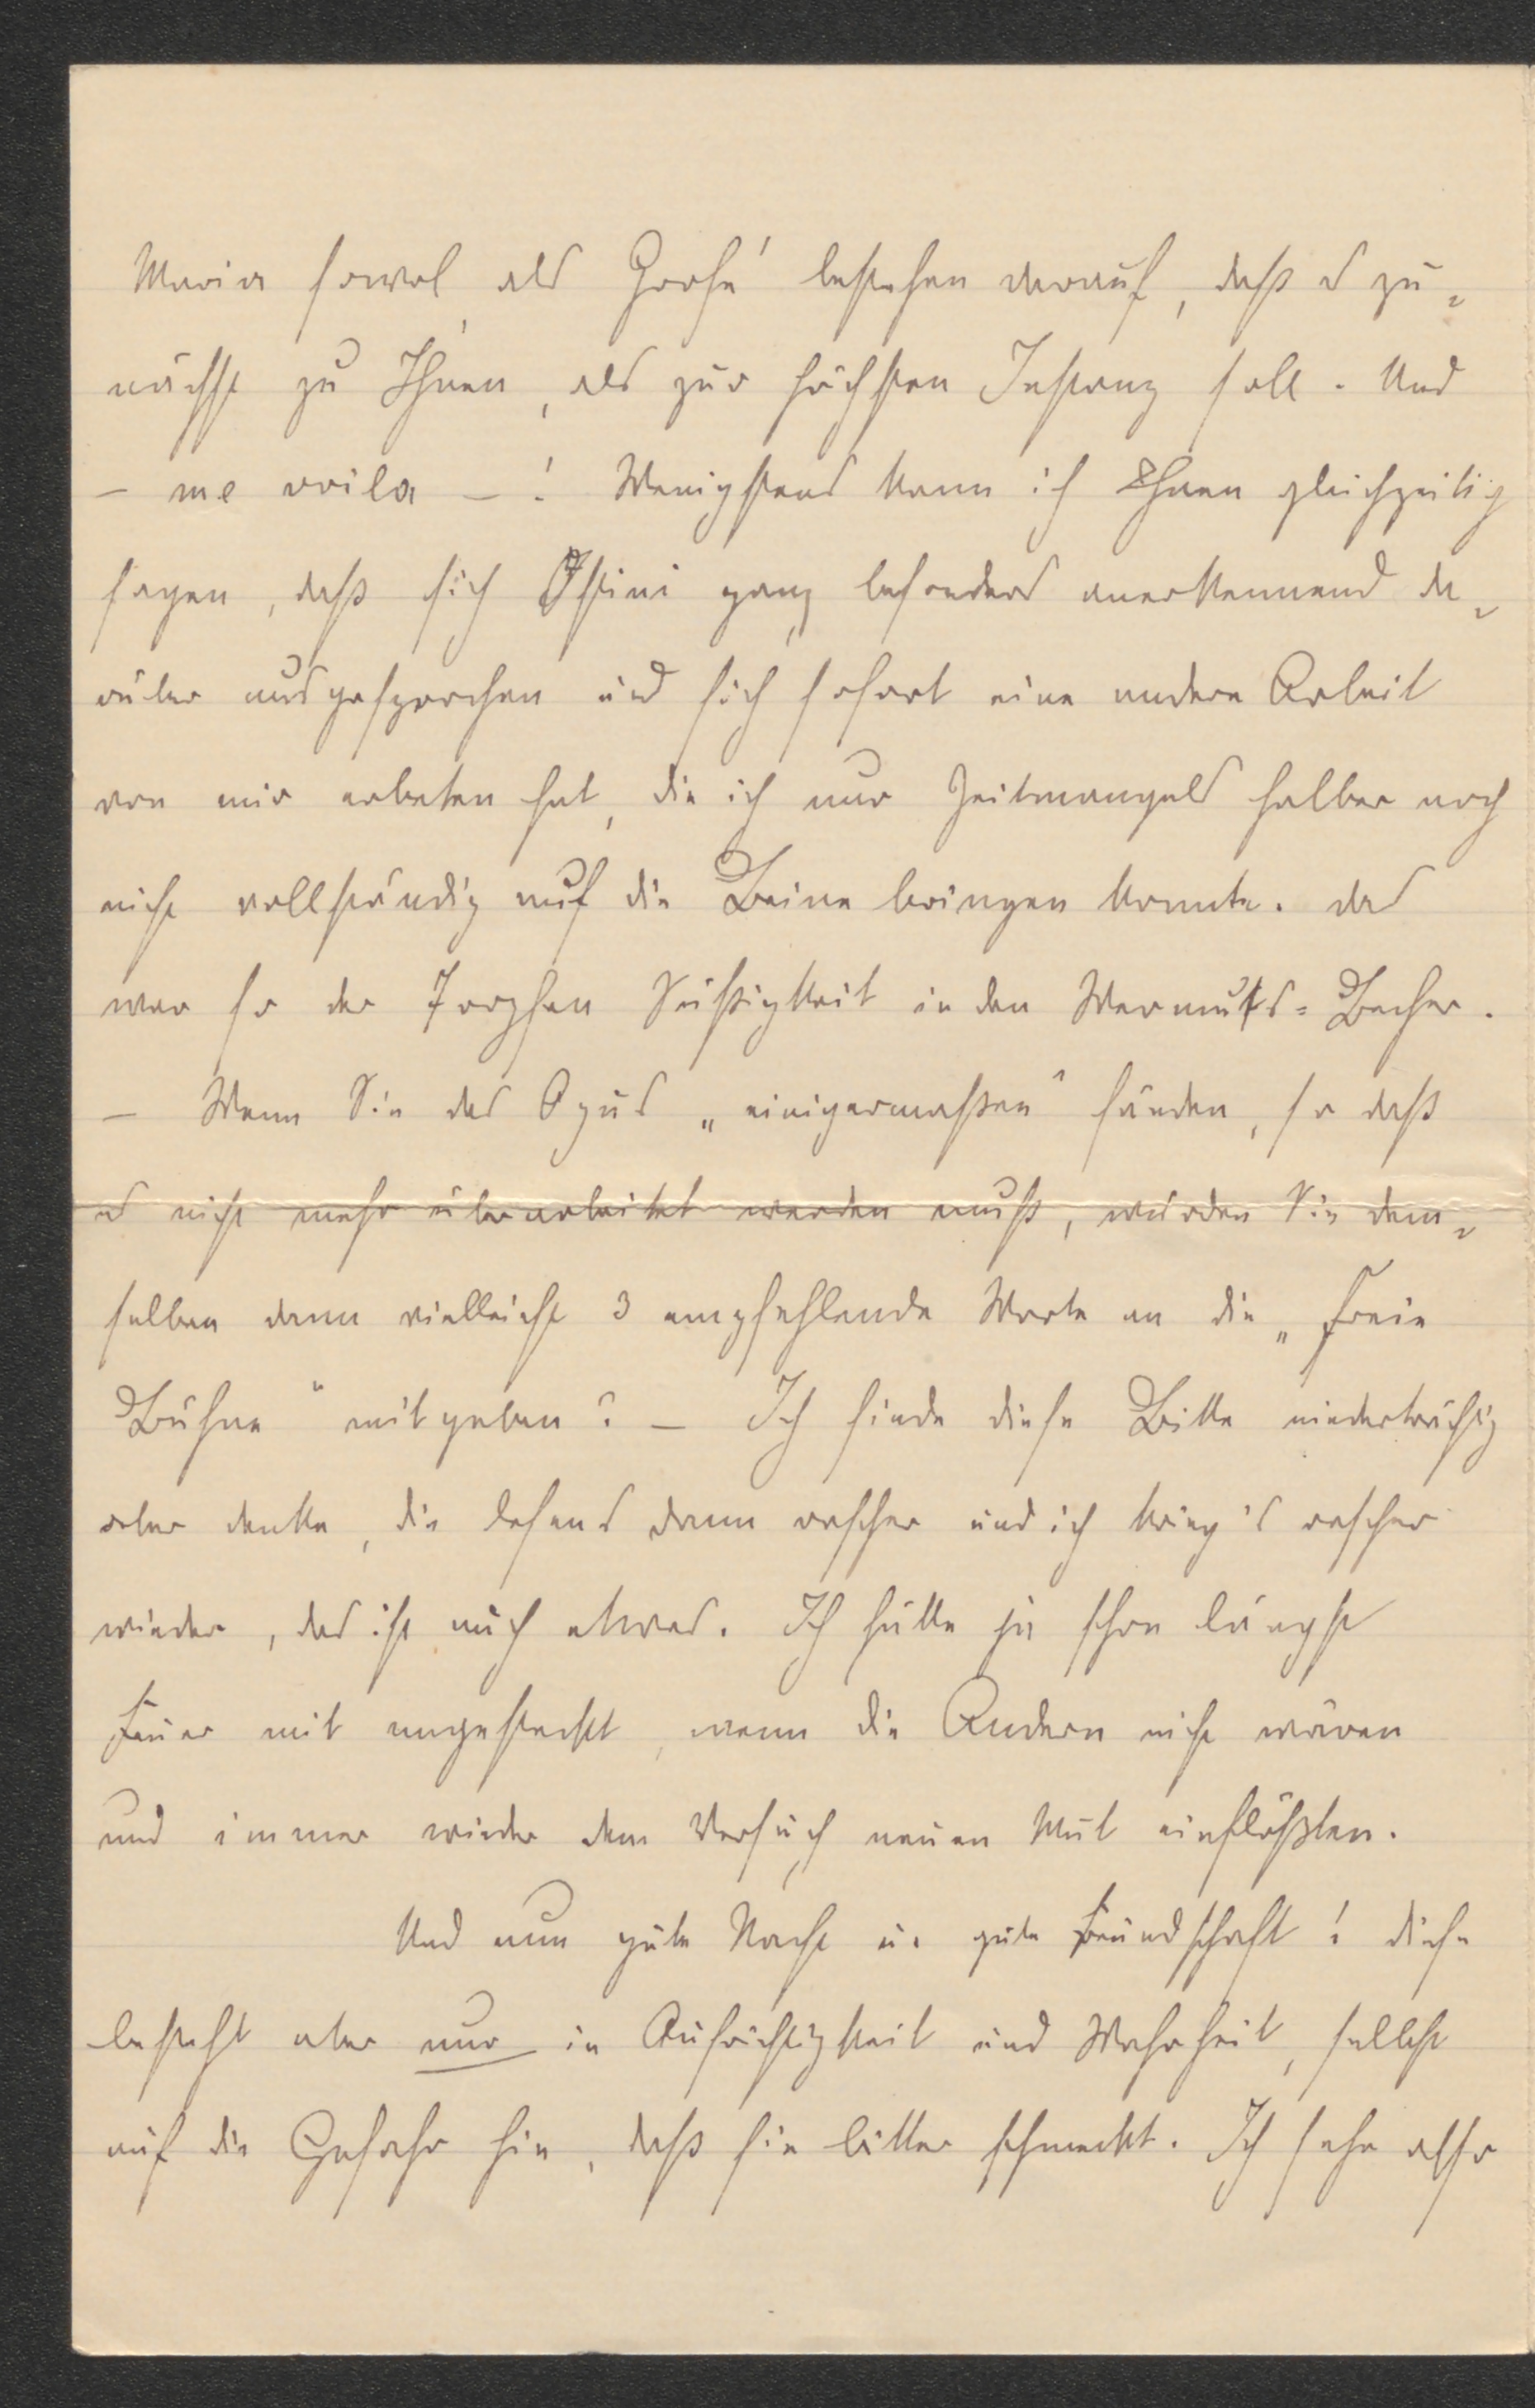 Maria sowol, als Grohé bestehen darauf, daß es zu-
nächst zu Ihnen, als zur höchsten Instanz soll. Und
– me voila – ! Wenigstens kann ich Ihnen gleichzeitig
sagen, daß sich Ostini ganz besonders anerkennend da-
rüber ausgesprochen und sich sofort eine andere Arbeit
von mir erbeten hat, die ich nur Zeitmangels halber noch
nicht vollständig auf die Beine bringen konnte. das
war so der Tropfen Süßigkeit in den Wermuts-Becher.
– Wenn Sie das Opus „einigermaßen“ fänden, so daß
es nicht mehr überarbeitet werden muß, würden Sie dem-
selben dann vielleicht 3 empfehlende Worte an die „Freie
Bühne“ mitgeben? – Ich finde diese Bitte niederträchtig
aber denke, die lesens dann rascher und ich krieg's rascher
wieder, das ist auch etwas. Ich hätte ja schon längst
Feuer mit angesteckt, wenn die Andern nicht wären
und immer wieder dem Versuch neuen Mut einflößten.
Und nun gute Nacht u. gute Freundschaft! diese
besteht aber nur in Aufrichtigkeit und Wahrheit, selbst
auf die Gefahr hin, daß sie bitter schmeckt. Ich sehe also